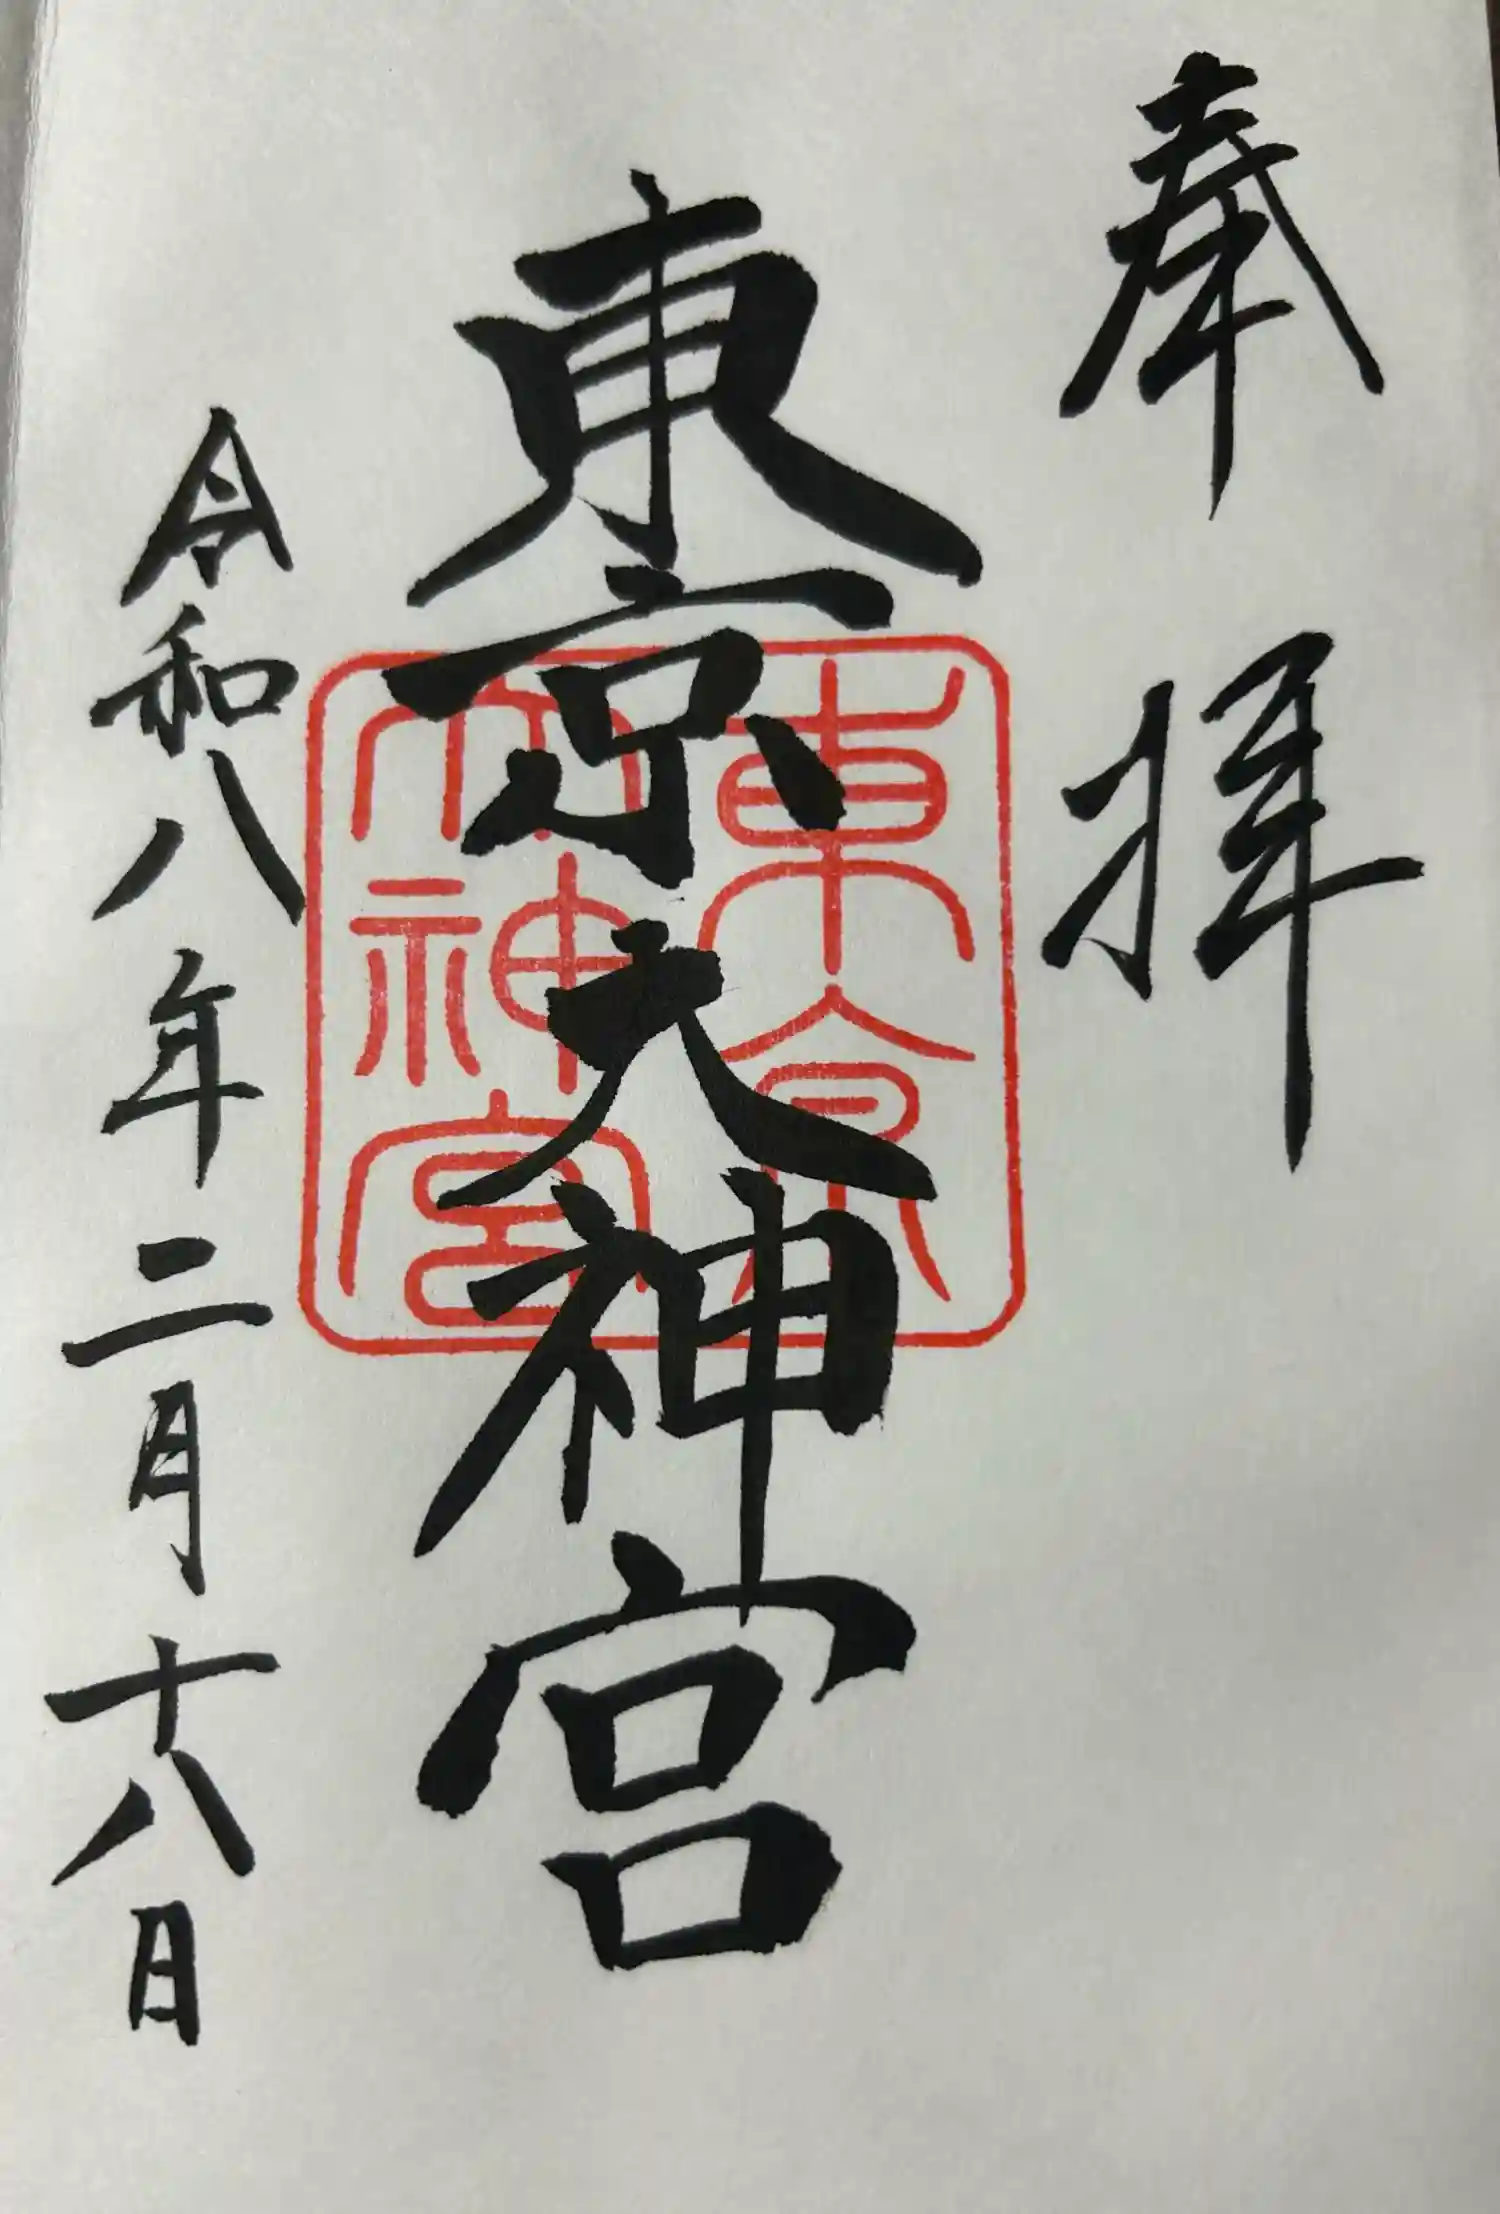 奉拝
東京大神宮
東京
大神宮
令和八年二月十八日